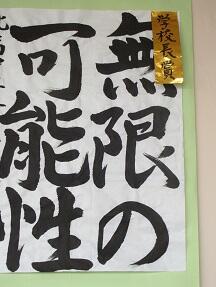 学校長賞
無限の
可能性